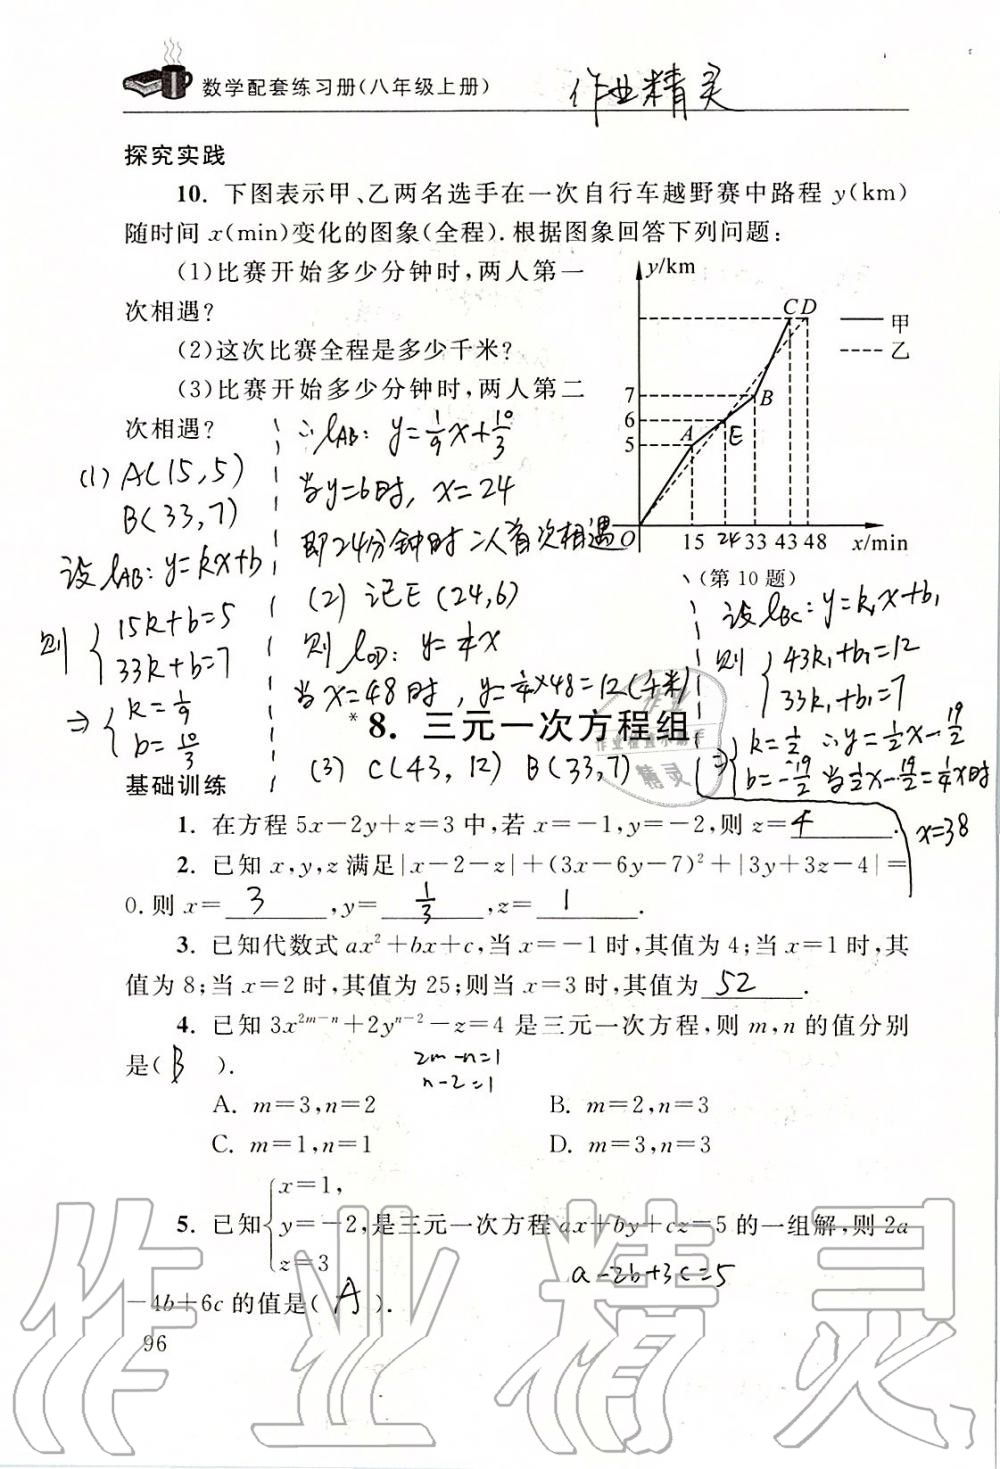 数学配套练习册(八年级上册)
作业精灵
探究实践
10. 下图表示甲、乙两名选手在一次自行车越野赛中路程 y(km)
随时间 x(min)变化的图象(全程). 根据图象回答下列问题:
(1)比赛开始多少分钟时,两人第一
次相遇?
(2)这次比赛全程是多少千米?
(3)比赛开始多少分钟时,两人第二
次相遇?
y/km
C D
甲
乙
7
6
5
A
B
E
O
15 24 33 43 48 x/min
(第 10 题)
(1) A(15,5)
B(33,7)
设 l_AB: y=kx+b
则 { 15k+b=5
33k+b=7
⇒ { k=1/9
b=10/3
∴ l_AB: y=1/9x+10/3
当y=6时, x=24
即24分钟时二人首次相遇
(2) 记E (24,6)
则 l_OD: y=1/4x
当x=48时, y=1/4×48=12(千米)
(3) C(43,12) B(33,7)
设 l_BC: y=k₁x+b₁
则 { 43k₁+b₁=12
33k₁+b₁=7
⇒ { k=1/2 ∴y=1/2x-19/2
b=-19/2 当1/2x-19/2=1/4x时
x=38
*8. 三元一次方程组
作业检查小助手
精灵
基础训练
1. 在方程 5x-2y+z=3 中,若 x=-1,y=-2,则 z=4.
2. 已知 x,y,z 满足|x-2-z|+(3x-6y-7)²+|3y+3z-4|=
0. 则 x=3,y=1/3,z=1.
3. 已知代数式 ax²+bx+c,当 x=-1 时,其值为 4;当 x=1 时,其
值为 8;当 x=2 时,其值为 25;则当 x=3 时,其值为 52.
4. 已知 3x^{2m-n}+2y^{n-2}-z=4 是三元一次方程,则 m,n 的值分别
是( B ).
2m-n=1
n-2=1
A. m=3,n=2 B. m=2,n=3
C. m=1,n=1 D. m=3,n=3
5. 已知{ x=1,
y=-2,是三元一次方程 ax+by+cz=5 的一组解,则 2a
z=3
a-2b+3c=5
-4b+6c 的值是( A ).
96
作业精灵